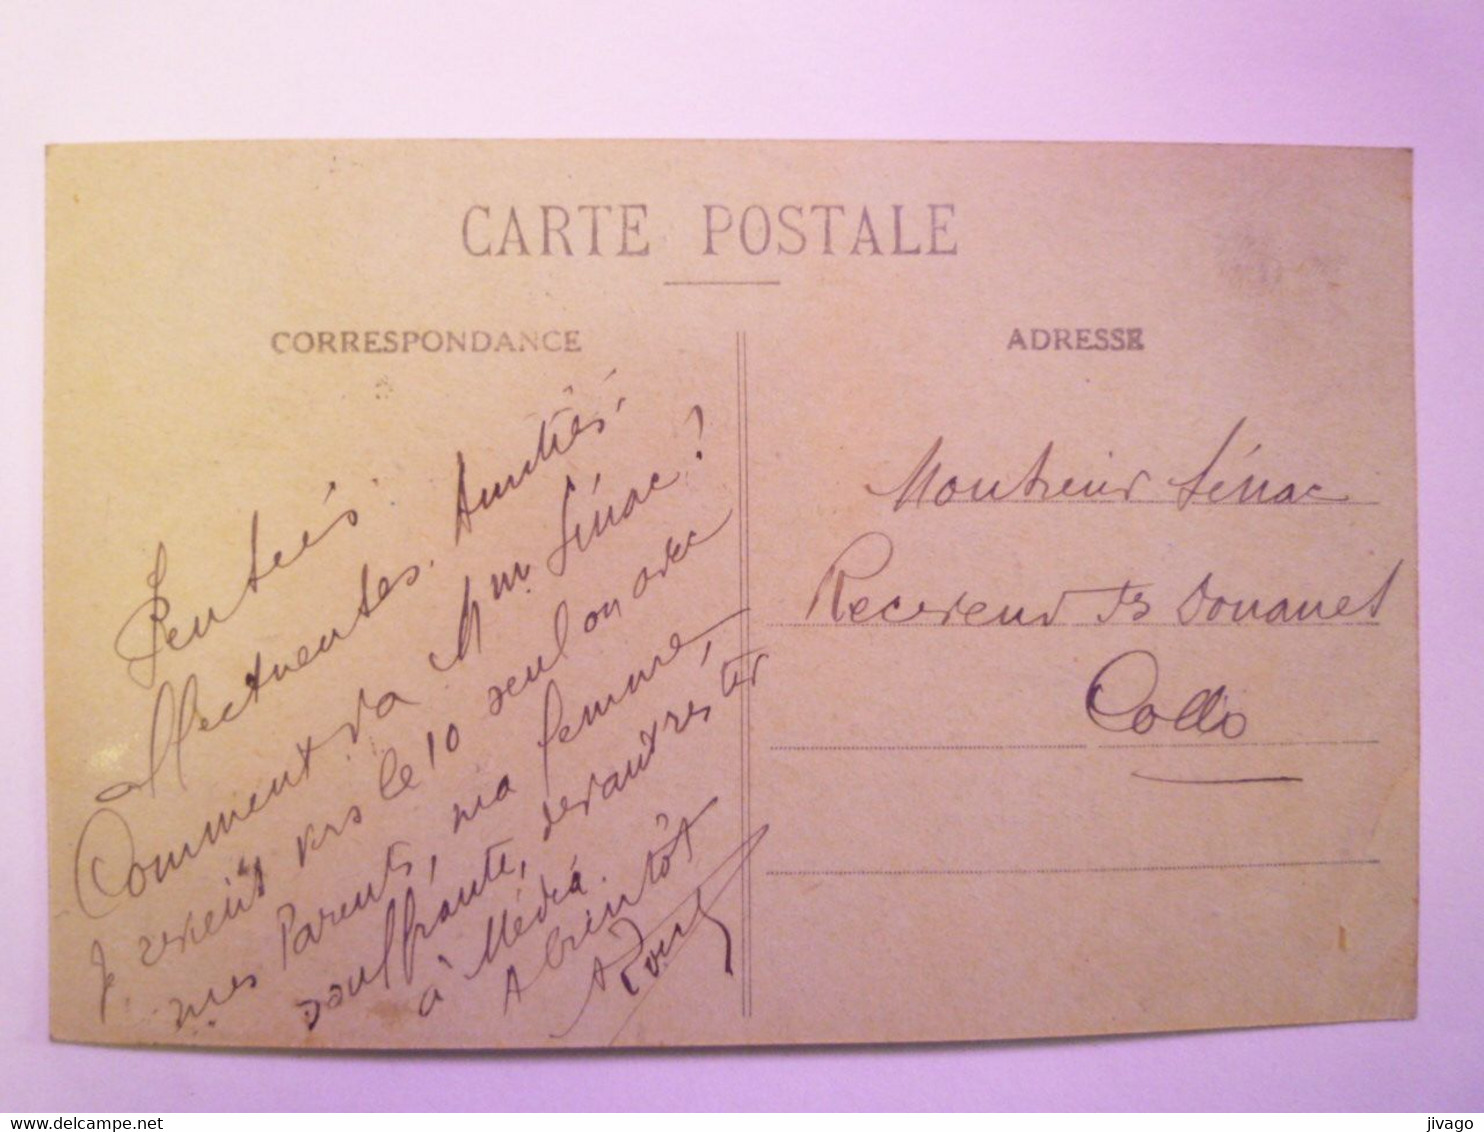 CARTE POSTALE
CORRESPONDANCE
Pensées
affectueuses. Amitiés.
Comment va Mme Sénac ?
Je reviens vers le 10 seul ou avec
mes Parents, ma femme,
souffrante, devant rester
à Médéa.
A bientôt
ADRESSE
Monsieur Sénac
Receveur des Douanes
Collo
www.delcampe.net
jivago